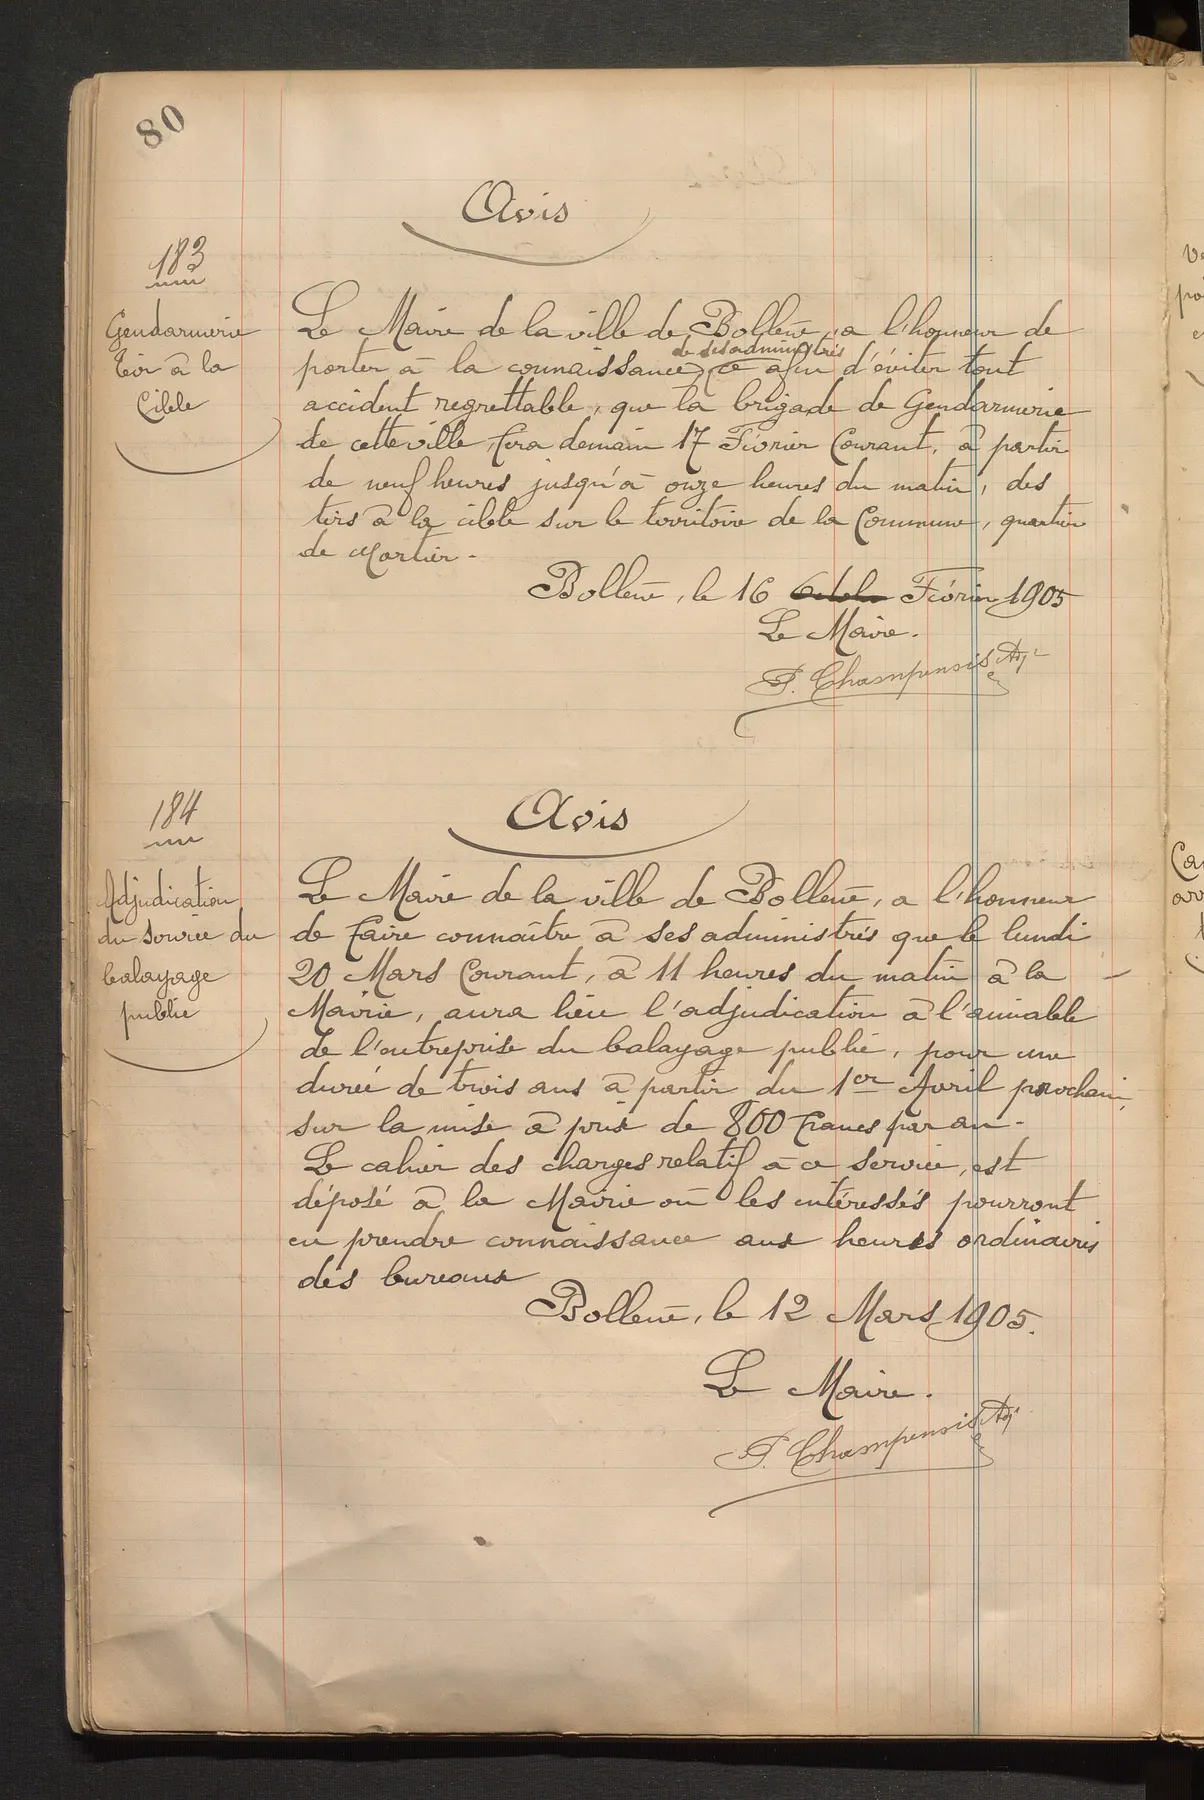 80
Avis
183
Gendarmerie
Tir à la
Cible
Le Maire de la ville de Bollène, a l'honneur de
de ses administrés
porter à la connaissance, afin d'éviter tout
accident regrettable, que la brigade de Gendarmerie
de cette ville, fera demain 17 Février Courant, à partir
de neuf heures jusqu'à onze heures du matin, des
tirs à la cible sur le territoire de la Commune, quartier
de Martin.
Bollène, le 16 Février 1905
Le Maire.
P. Champenois Adj.
184
Adjudication
du service du
balayage
public
Avis
Le Maire de la ville de Bollène, a l'honneur
de faire connaître à ses administrés que le lundi
20 Mars Courant, à 11 heures du matin à la
Mairie, aura lieu l'adjudication à l'amiable
de l'entreprise du balayage public, pour une
durée de trois ans à partir du 1er Avril prochain,
sur la mise à prix de 800 francs par an.
Le cahier des charges relatif à ce service, est
déposé à la Mairie où les intéressés pourront
en prendre connaissance aux heures ordinaires
des bureaux
Bollène, le 12 Mars 1905.
Le Maire.
P. Champenois Adj.